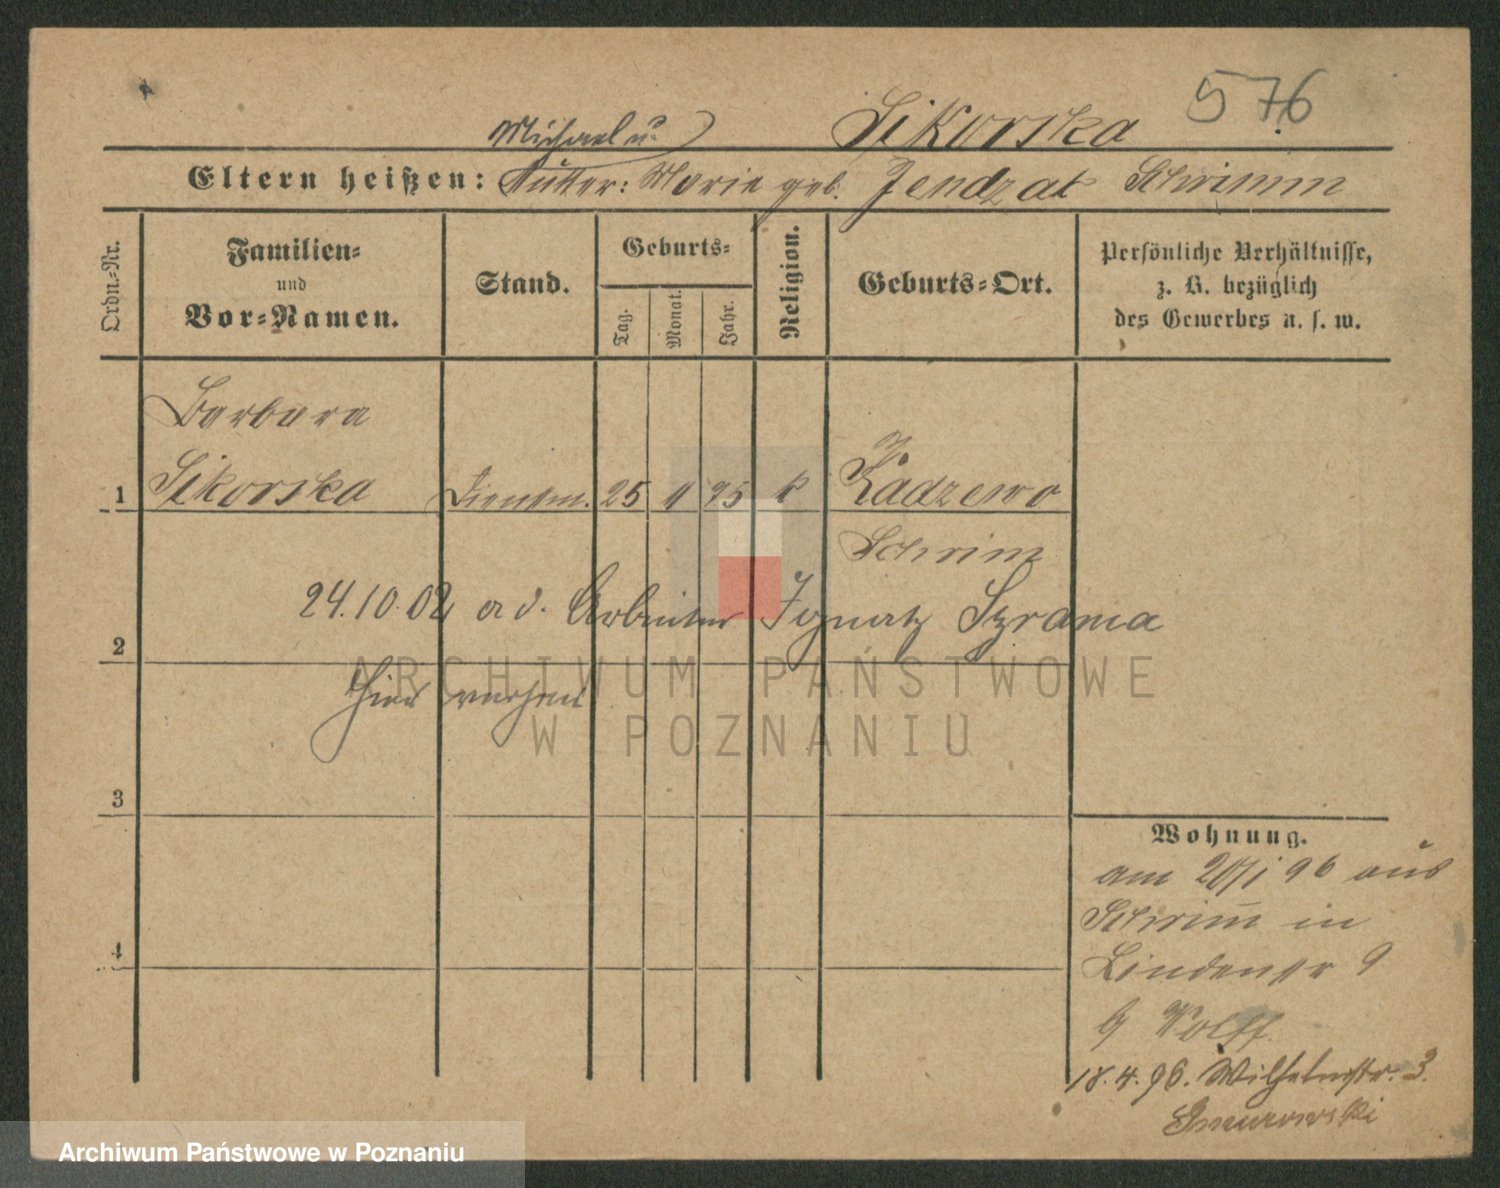 576
Michael u. Sikorska
Eltern heißen: Mutter: Marie geb. Jendzak Schrimm
Ordn.-Nr.
Familien-
und
Vor-Namen.
Stand.
Geburts-
Tag.
Monat.
Jahr.
Religion.
Geburts-Ort.
Persönliche Verhältnisse,
z. B. bezüglich
des Gewerbes u. s. w.
Barbara
1 Sikorska Dienstm. 25 11 75 k Xadzewo
Schrim
24.10.02 a d. Arbeiter Ignatz Szrama
2
hier verh
3
4
Wohnung.
am 20/1 96 aus
Schrim̄ in
Lindenstr 9
b Wolff.
18.4.96. Wilhelmstr. 3.
Smurowski
ARCHIWUM PAŃSTWOWE
W POZNANIU
Archiwum Państwowe w Poznaniu